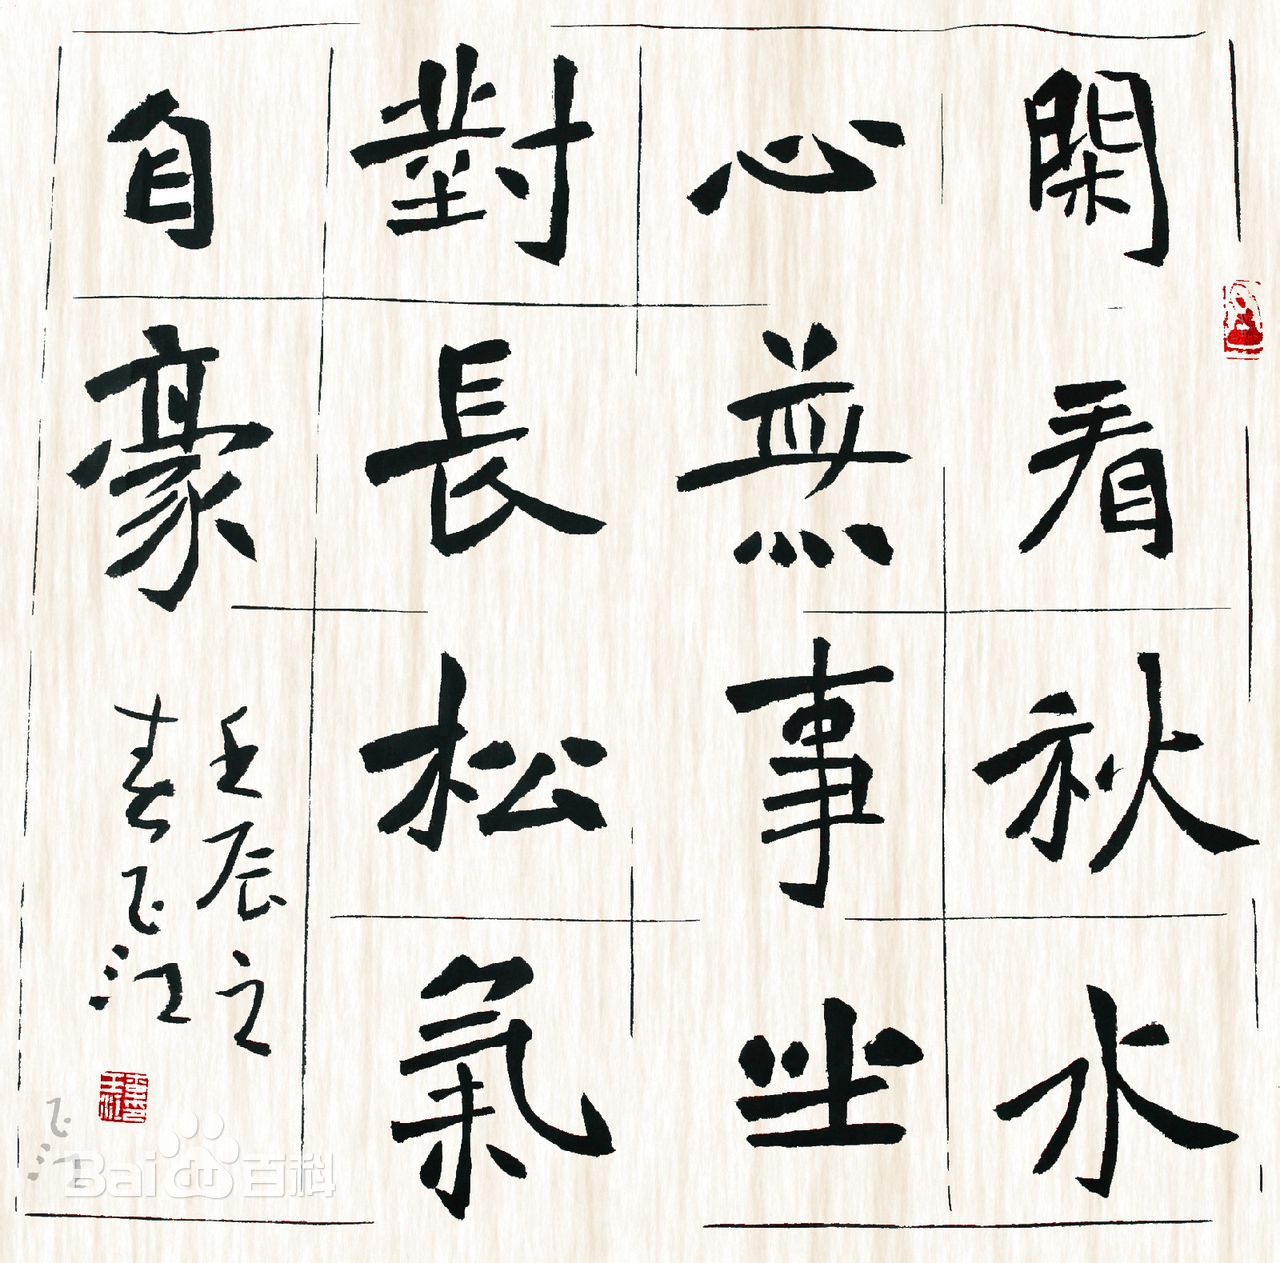 閑看秋水
心無事坐
對長松氣
自豪
壬辰之
春飞江
飞江
Baidu百科